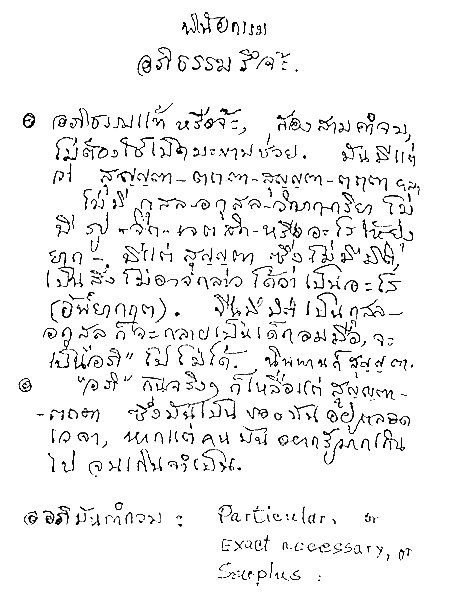 อภิธรรม รึจ๊ะ.
อภิธรรมแท้ หรือจ๊ะ, ต้อง
ไม่ต้องใช้ ช่วย. มันมีแต่
ว่า สุญญตา-ตถตา-สุญญตา-ตถตา
ไม่มี กุศล-อกุศล- ไม่
มี รูป-จิต-เจตสิก-หรืออะไรให้ยุ่ง
ยาก-, มีแต่ สุญญตา ซึ่งไม่มีมิติ
เป็นสิ่ง ไม่อาจกล่าว ได้ว่า เป็นอะไร
(อัพ๎ยากฤต). เป็นกุศล-
อกุศล ก็จะกลายเป็น จะ
เป็น"อภิ" ไปไม่ได้. นิพพานก็สุญญตา.
"อภิ" กันจริงๆ ก็เหลือแต่ สุญญตา-
-ตถตา ซึ่งมันเป็น ของมัน อยู่ตลอด
เวลา, หากแต่ คน มัน อยากรู้มากเกิน
ไป จนเกินจำเป็น.
อภิมันเกิน : Particular, or
Exact necessary, or
Surplus :